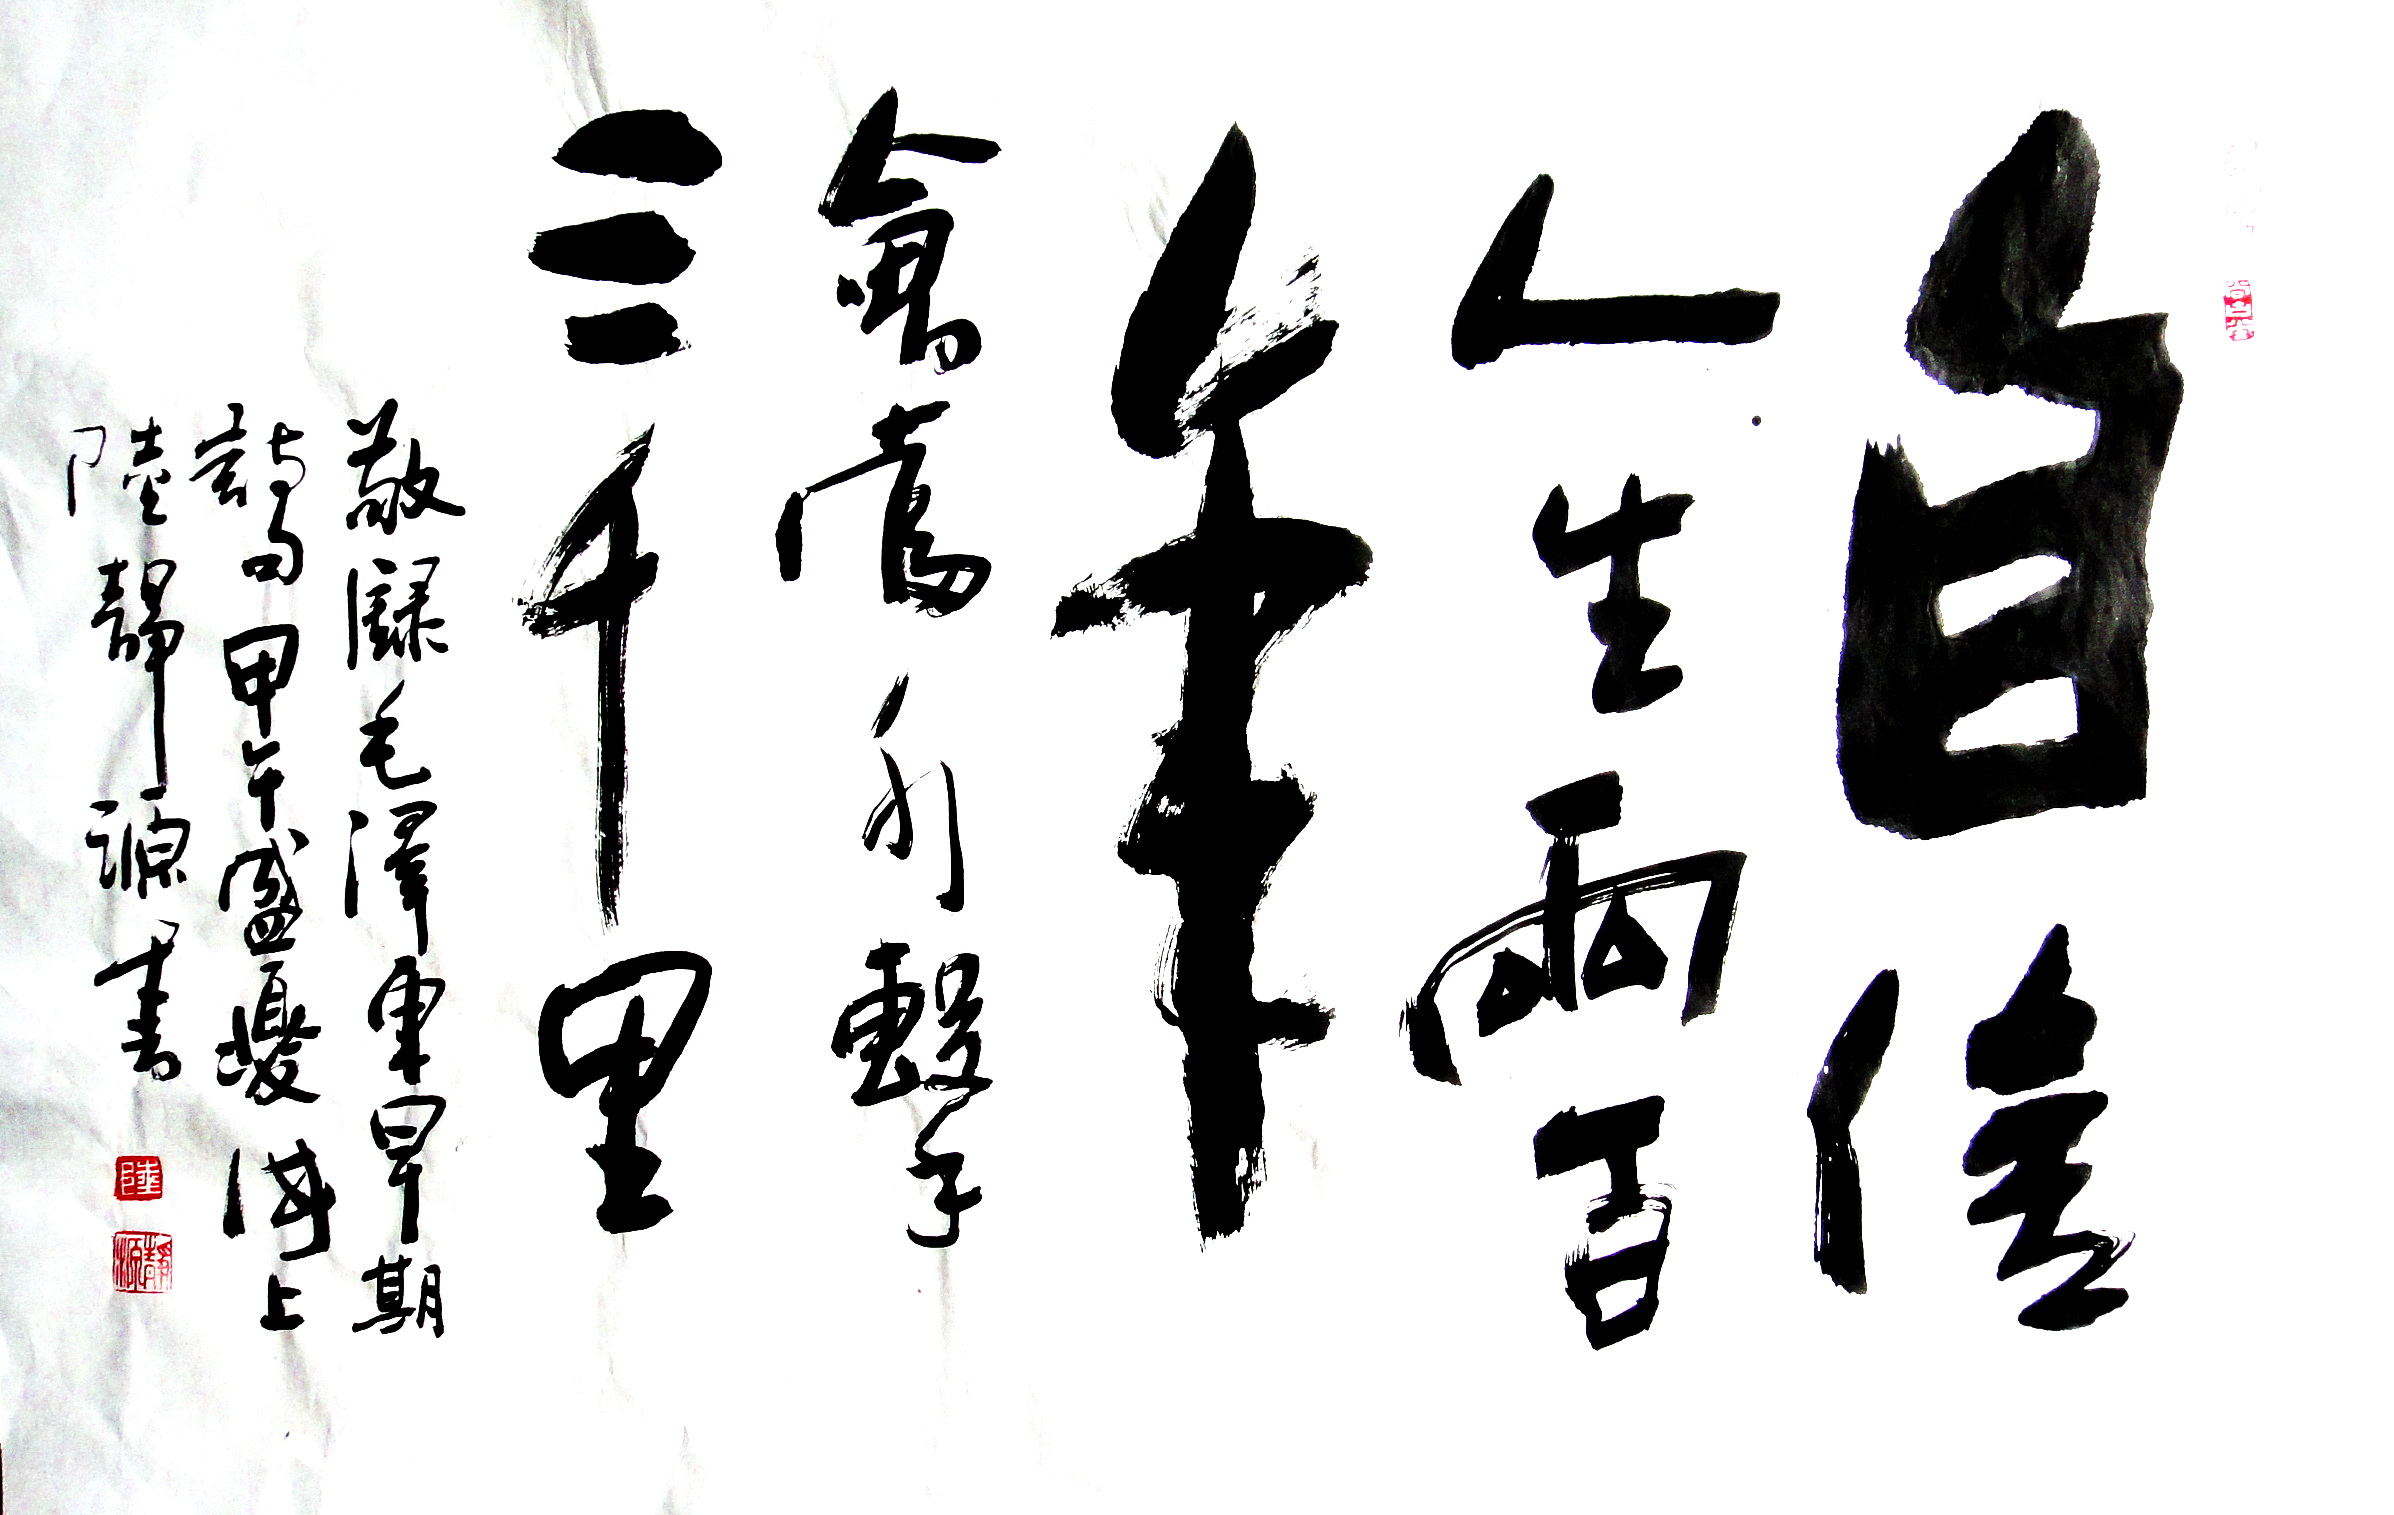 自信
人生兩百
年
會當水擊
三千里
敬錄毛澤東早期
詩句甲午盛夏海上
陸靜源書
陸
靜源